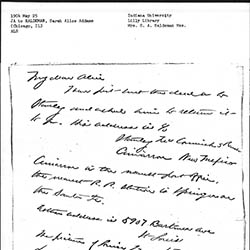 1904 May 25
JA to HALDEMAN, Sarah Alice Addams
(Chicago, Il)
ALS
Indiana University
Lilly Library
Mrs. S. A. Haldeman Mss.
My dear Alice
the deed to
Stanley and asked him to return it
to . His address is
Stanley McCormick
Cimarron New Mexico
Cimarron is the nearest Post Office,
the nearest R.R. station is Springer on
the Santa Fe.
address is 5907 Bartmer Ave
St Louis